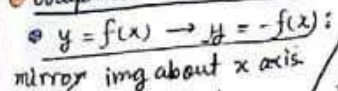 y = f(x) → y = -f(x):
mirror img about x axis.